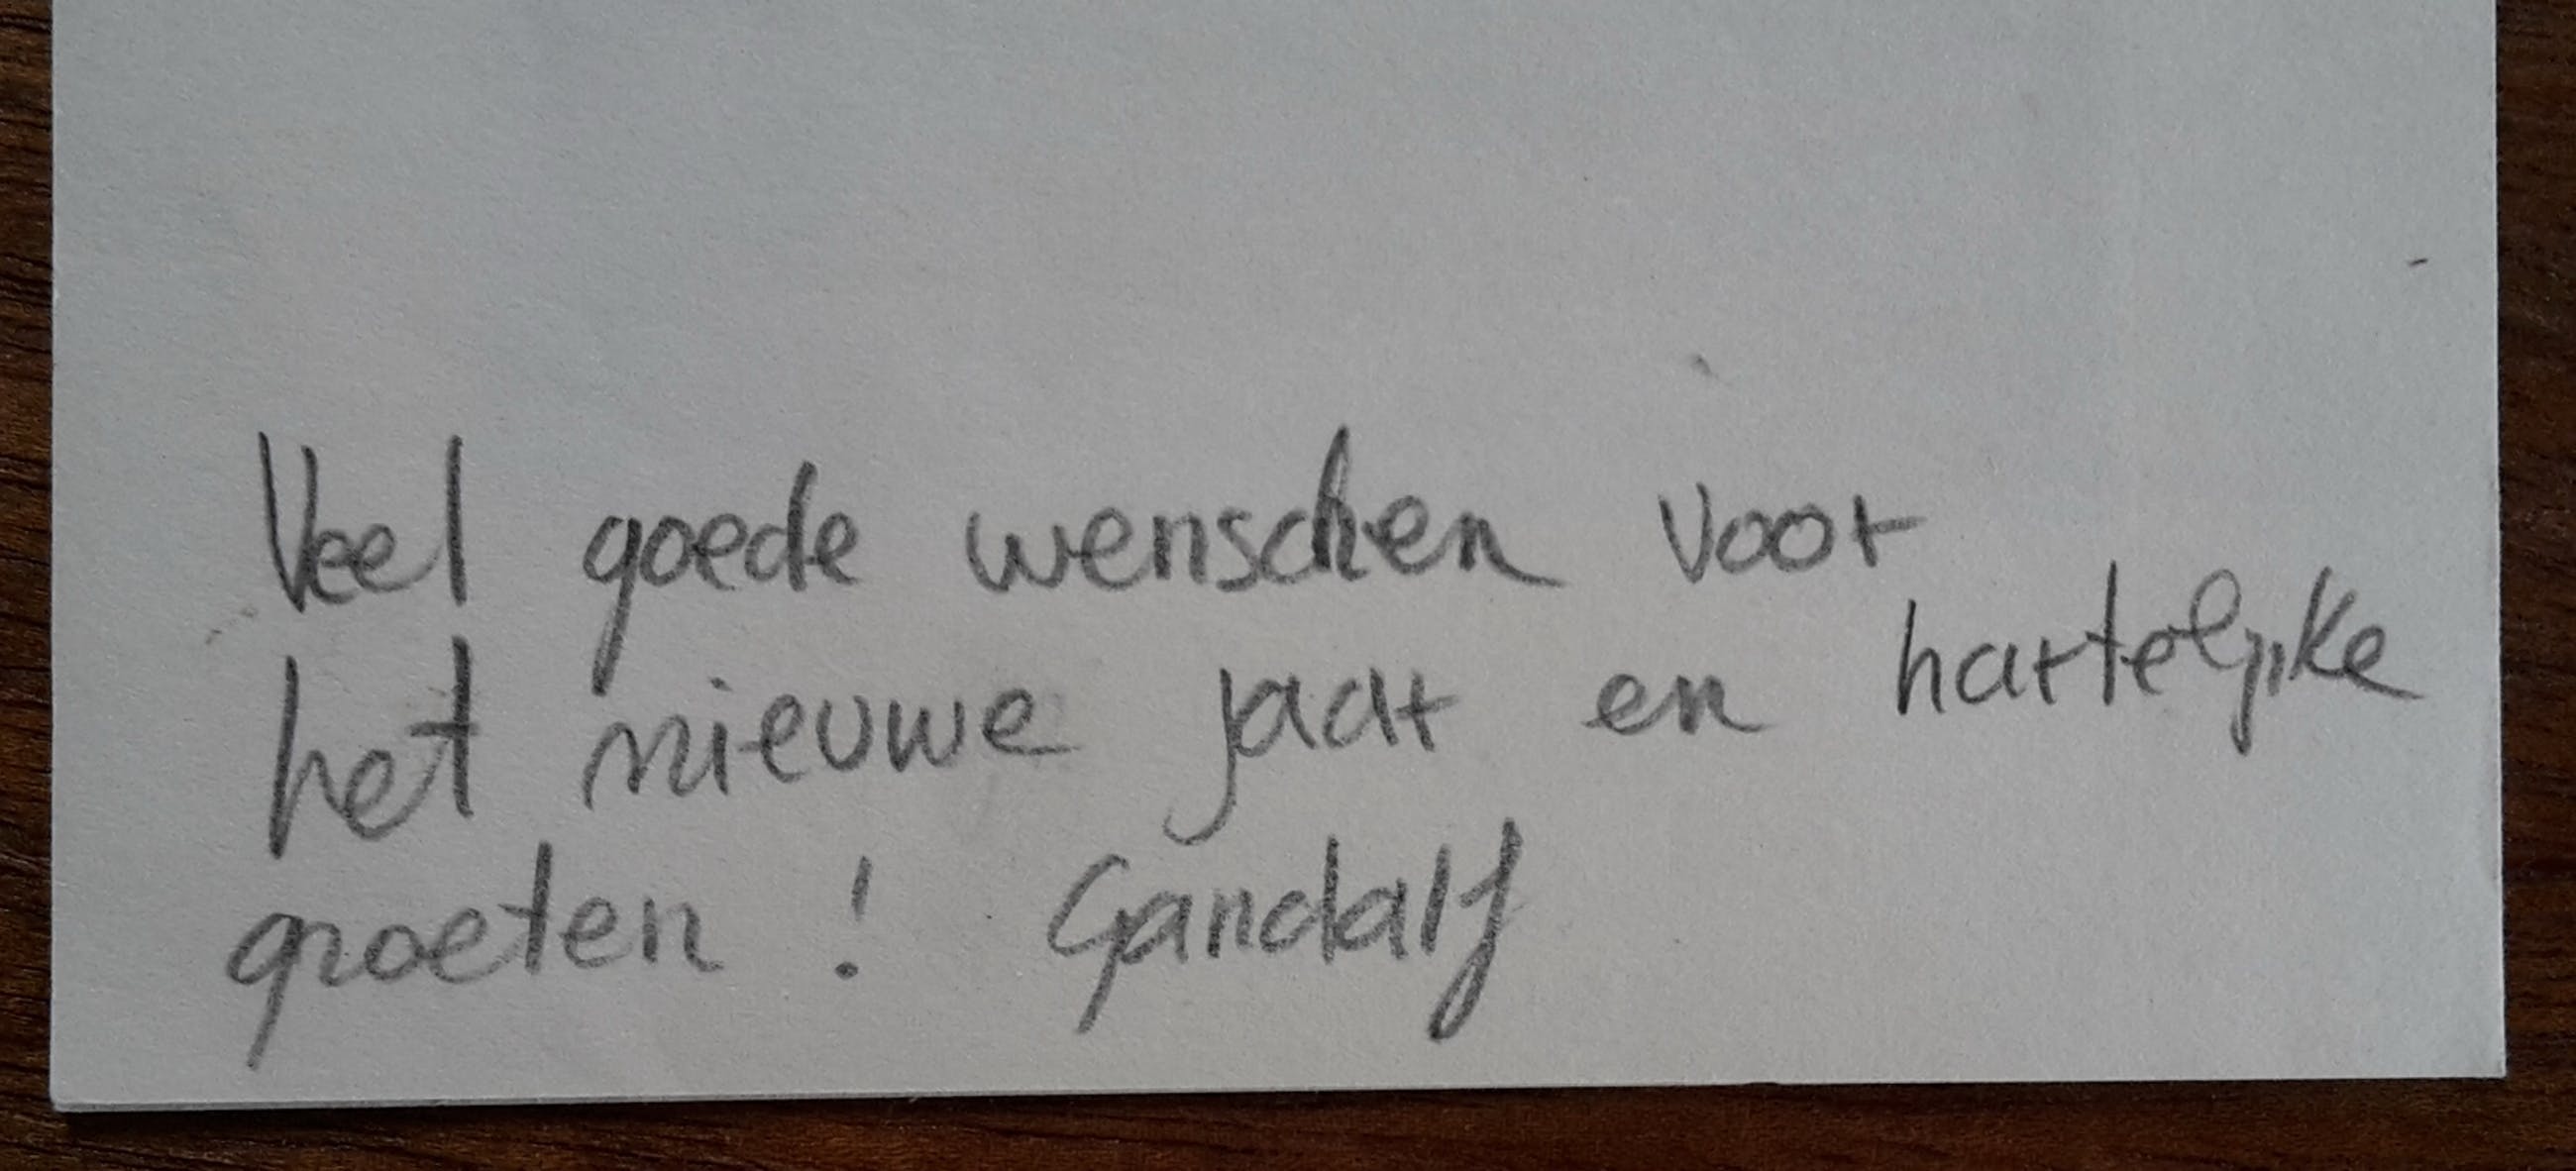 Veel goede wenschen voor
het nieuwe jaar en hartelijke
groeten ! Gandalf